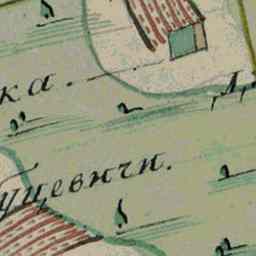 ка.
уцевичи.